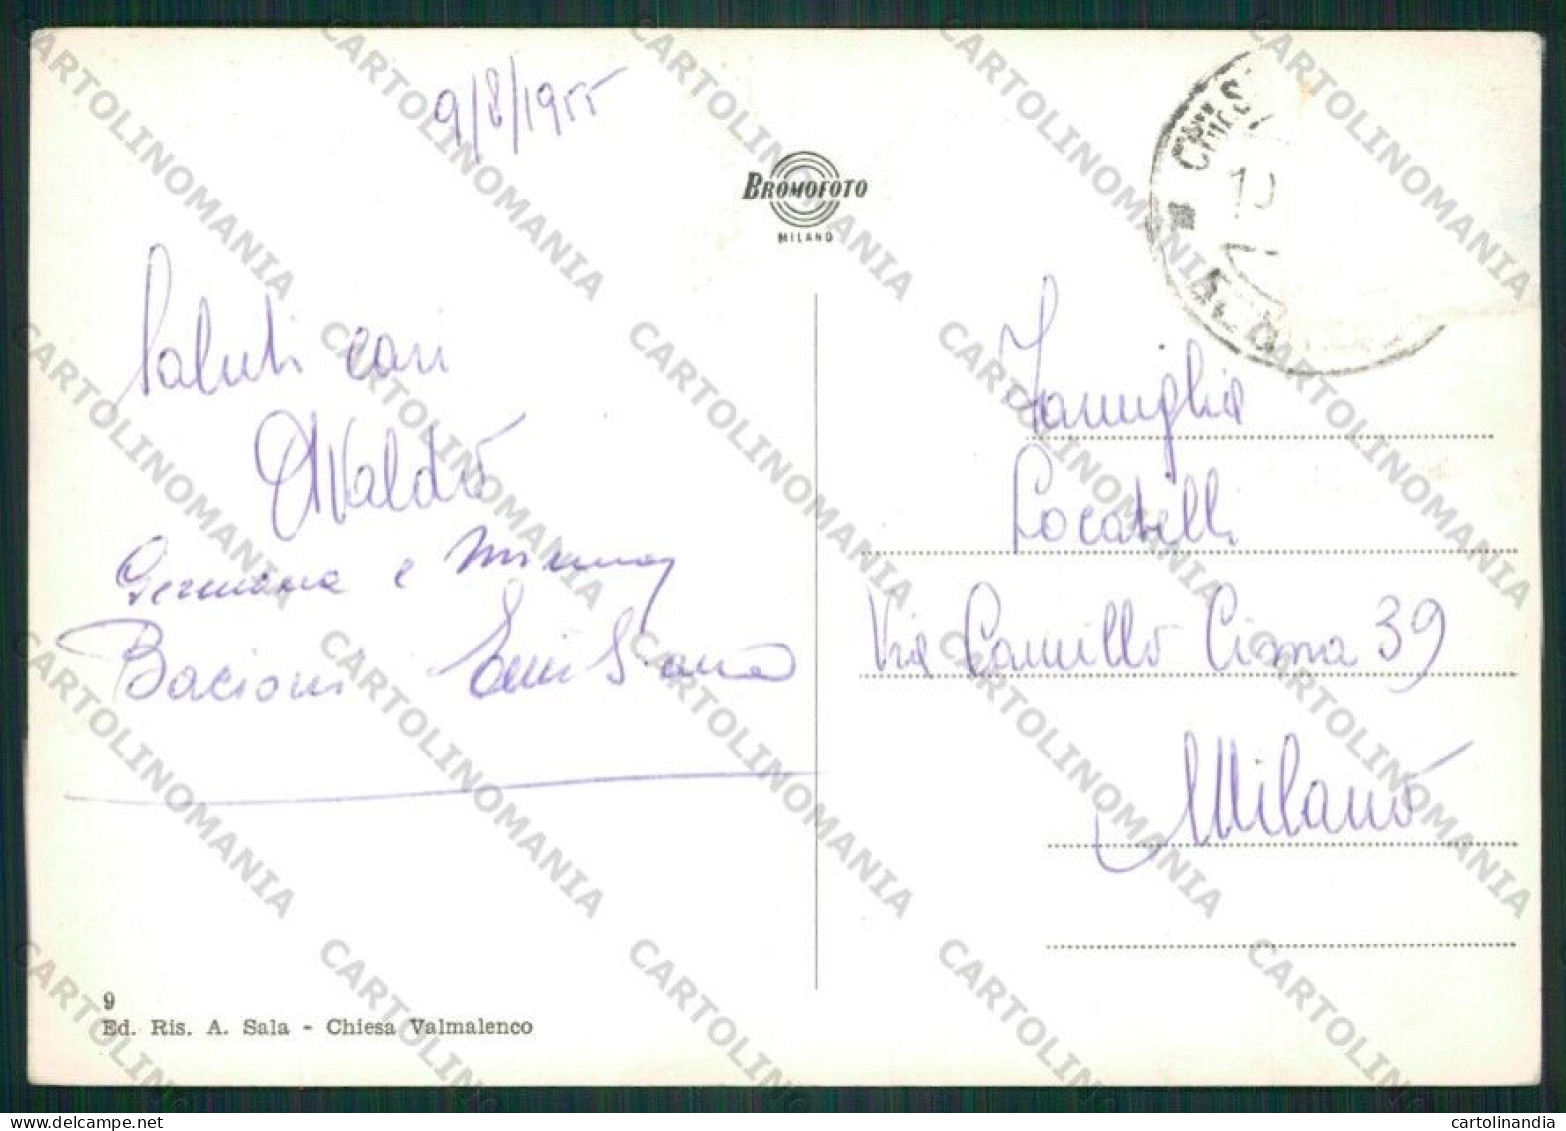 9/8/1955
BROMOFOTO
MILANO
CHIESA
10
Saluti cari
Waldo
Germana e Mimma
Bacioni
Famiglia
Locatelli
Via Camillo Cima 39
Milano
9
Ed. Ris. A. Sala - Chiesa Valmalenco
CARTOLINOMANIA
cartolinandia